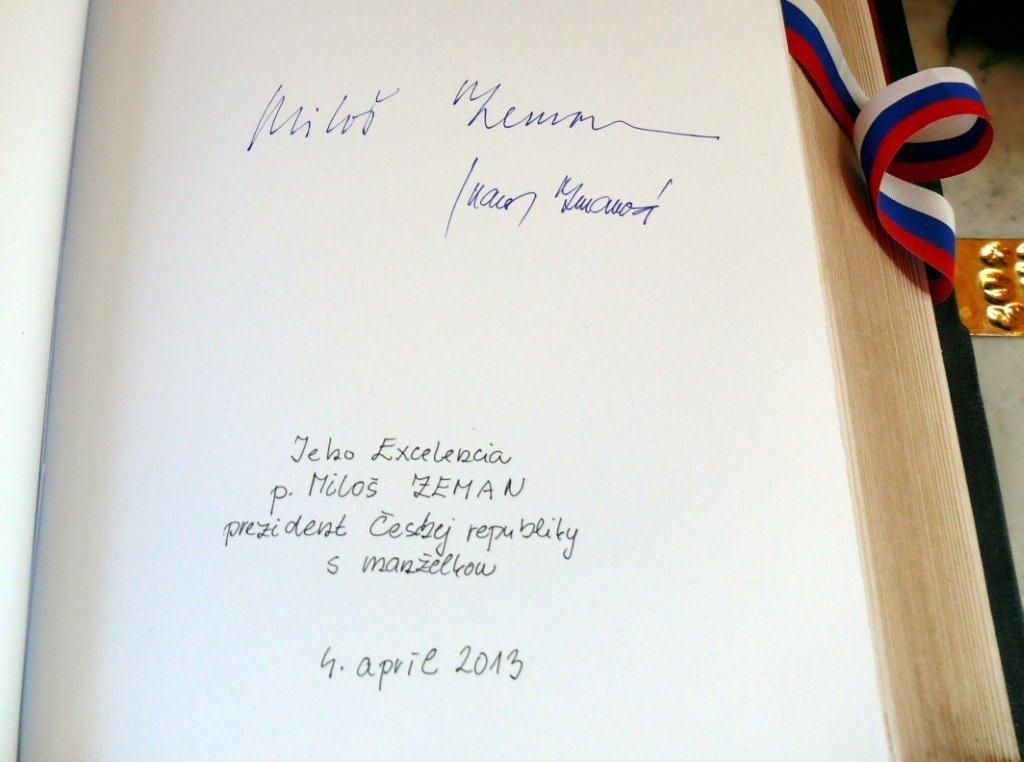 Miloš Zeman
Ivana Zemanová
Jeho Excelencia
p. Miloš ZEMAN
prezident Českej republiky
s manželkou
4. apríl 2013